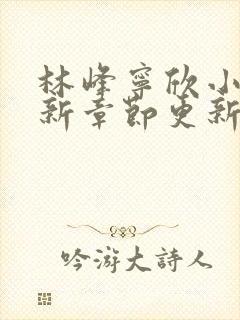 林峰寧欣小
新章節更新
吟游大詩人